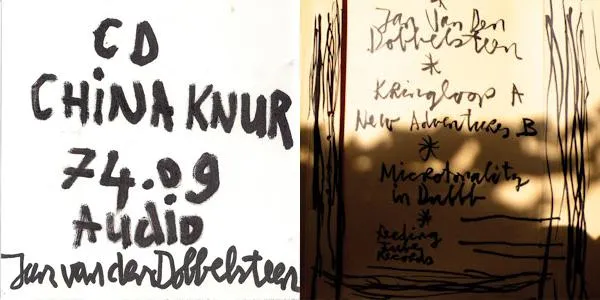 CD
CHiNA KNUR
74.09
Audio
Jan van den Dobbelsteen
Jan Van Den
Dobbelsteen
*
KRingloop A
New Adventures B
*
Microtonality
in Dubbb
*
Feeding
Tube
Records